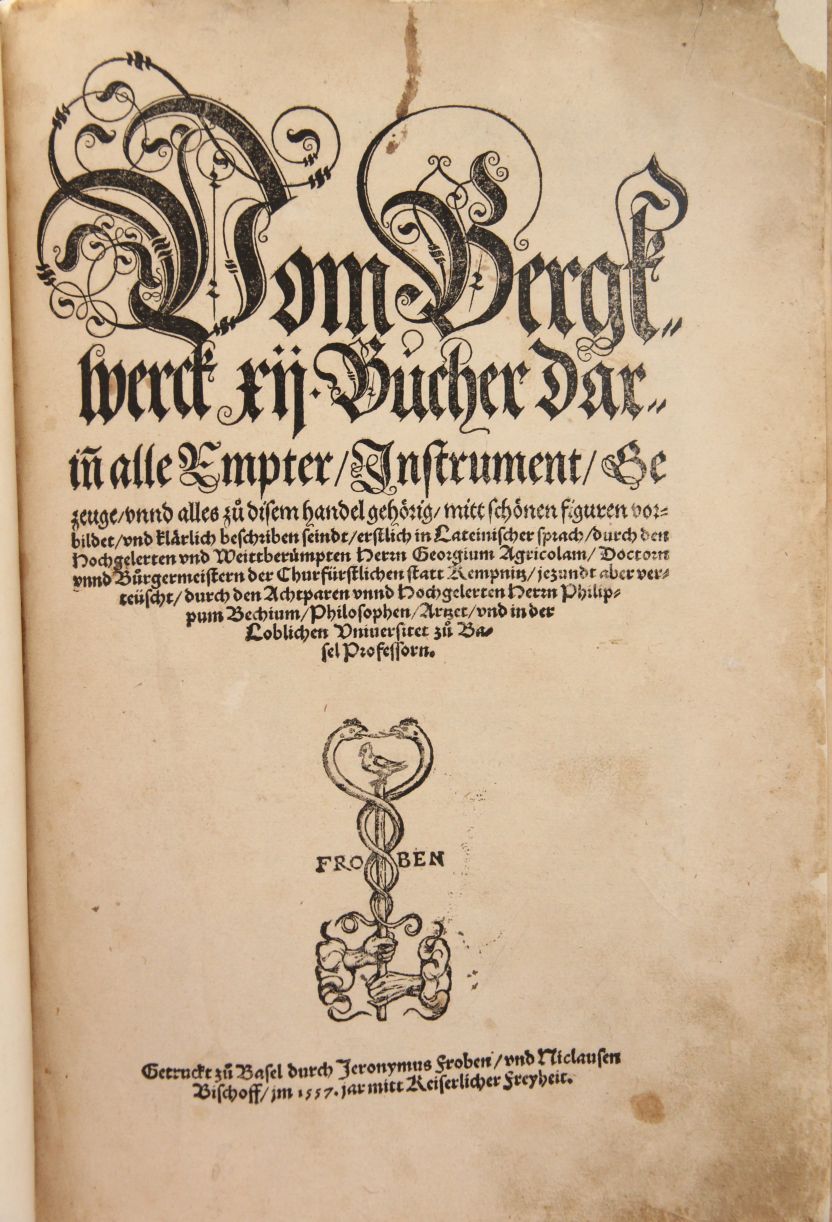 Vom Bergk⸗
werck xij. Bücher dar⸗
iñ alle Empter/Instrument/Ge
zeuge/vnnd alles zů disem handel gehörig/mitt schönen figuren vor⸗
bildet/vnd klärlich beschriben seindt/erstlich in Lateinischer sprach/durch den
Hochgelerten vnd Weittberümpten Herrn Georgium Agricolam/Doctorn
vnnd Bürgermeistern der Churfürstlichen statt Kempnitz/jezundt aber ver⸗
teüscht/durch den Achtparen vnnd Hochgelerten Herrn Philip⸗
pum Bechium/Philosophen/Artzet/vnd in der
Loblichen Vniuersitet zů Ba⸗
sel Professorn.
FRO BEN
Getruckt zů Basel durch Jeronymus Froben/vnd Niclausen
Bischoff/jm 1557. jar mitt Keiserlicher Freyheit.